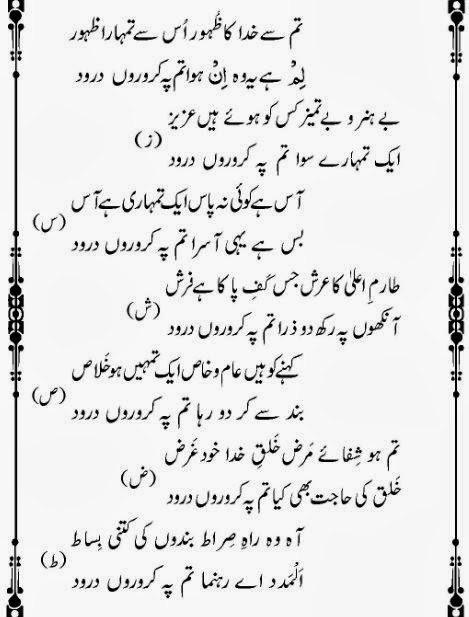 تم سے خدا کا ظُہور اُس سے تمہارا ظہور
لِمْ ہے یہ وہ اِنْ ہوا تم پہ کروروں درود
بے ہنر و بے تمیز کس کو ہوئے ہیں عزیز
(ز)
ایک تمہارے سوا تم پہ کروروں درود
آس ہے کوئی نہ پاس ایک تمہاری ہے آس
(س)
بس ہے یہی آسرا تم پہ کروروں درود
طارمِ اعلیٰ کا عرش جس کفِ پا کا ہے فرش
(ش)
آنکھوں پہ رکھ دو ذرا تم پہ کروروں درود
کہنے کو ہیں عام و خاص ایک تمہیں ہو خَلاص
(ص)
بند سے کر دو رہا تم پہ کروروں درود
تم ہو شِفائے مَرض خَلقِ خدا خود غَرض
(ض)
خَلق کی حاجت بھی کیا تم پہ کروروں درود
آہ وہ راہِ صِراط بندوں کی کتنی بِساط
(ط)
اَلْمَدد اے رہنما تم پہ کروروں درود